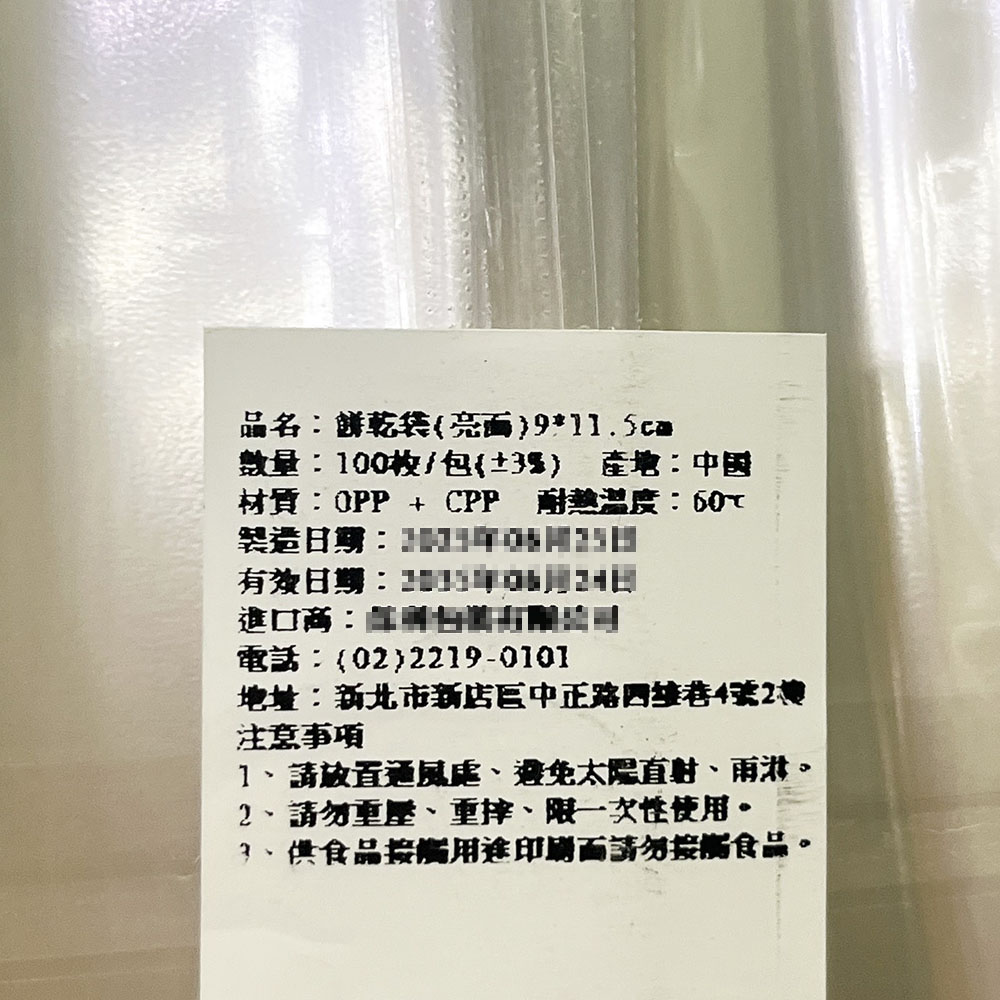 品名：餅乾袋(亮面)9*11.5cm
數量：100枚/包(±3%) 產地：中國
材質：OPP + CPP 耐熱溫度：60℃
製造日期：
有效日期：
進口商：
電話：(02)2219-0101
地址：新北市新店區中正路四維巷4號2樓
注意事項
1、請放置通風處、避免太陽直射、雨淋。
2、請勿重壓、重摔、限一次性使用。
3、供食品接觸用途印刷面請勿接觸食品。